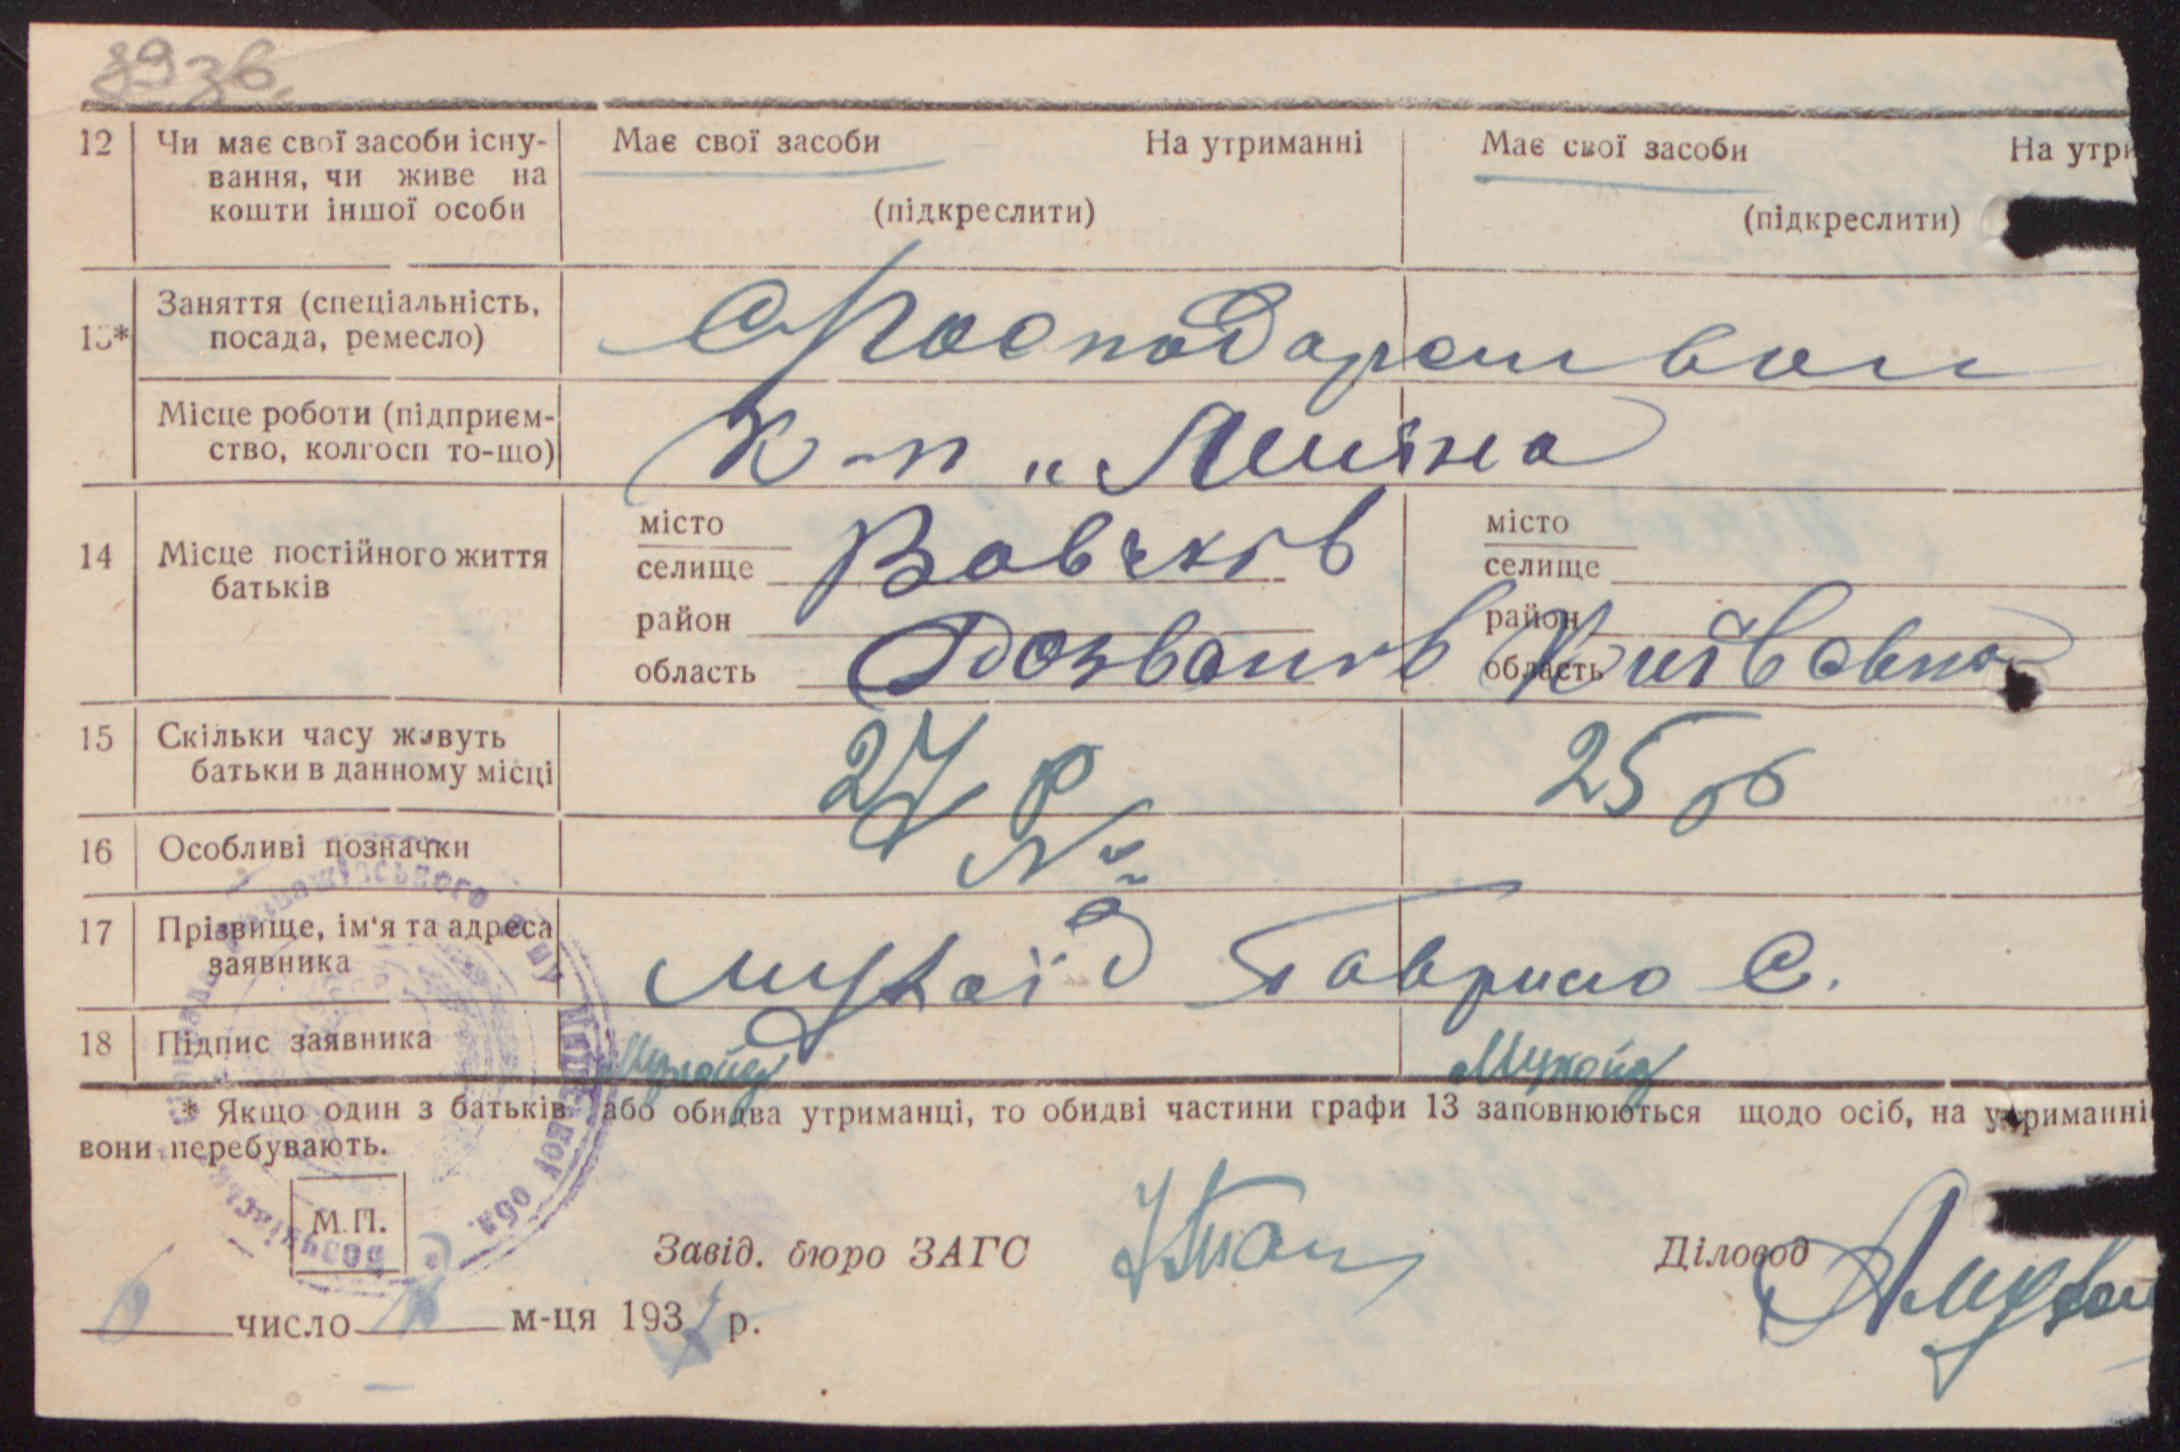 79 зв.
12 Чи має свої засоби існу-
вання, чи живе на
кошти іншої особи
Має свої засоби На утриманні
(підкреслити)
Має свої засоби На утри
(підкреслити)
13* Заняття (спеціальність,
посада, ремесло)
Місце роботи (підприєм-
ство, колгосп то-що)
К-п
14 Місце постійного життя
батьків
місто
селище Вовчків
район
область
місто
селище
район
область
15 Скільки часу живуть
батьки в данному місці
27 р
25 р
16 Особливі позначки
№
17 Прізвище, ім'я та адреса
заявника
Мухоїд Гаврило С.
18 Підпис заявника
Мухойд Мухойд
* Якщо один з батьків або обидва утриманці, то обидві частини графи 13 заповнюються щодо осіб, на утриманні
вони перебувають.
М.П.
Завід. бюро ЗАГС
Діловод
число м-ця 193 р.